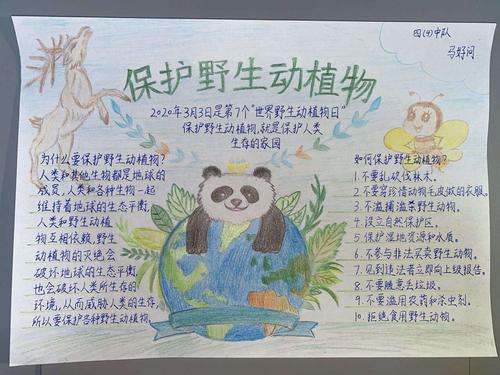 四(4)中队
马好问
保护野生动植物
2020年3月3日是第7个"世界野生动植物日"
保护野生动植物,就是保护人类
生存的家园
为什么要保护野生动植物?
人类和其他生物都是地球的
成员,人类和各种生物一起
维持着地球的生态平衡,
人类和野生动植
物互相依赖,野生
动植物的灭绝会
破坏地球的生态平衡,
也会破坏人类所生存的
环境,从而威胁人类的生存,
所以要保护各种野生动植物,
如何保护野生动植物?
1.不要乱砍伐林木。
2.不要穿珍惜动物毛皮做的衣服。
3.不滥捕滥禁野生动物。
4.设立自然保护区。
5.保护湿地资源和水质。
6.不参与非法买卖野生动物。
7.见到违法者立即向上级报告。
8.不要随意丢垃圾。
9.不要滥用农药和杀虫剂。
10.拒绝食用野生动物。